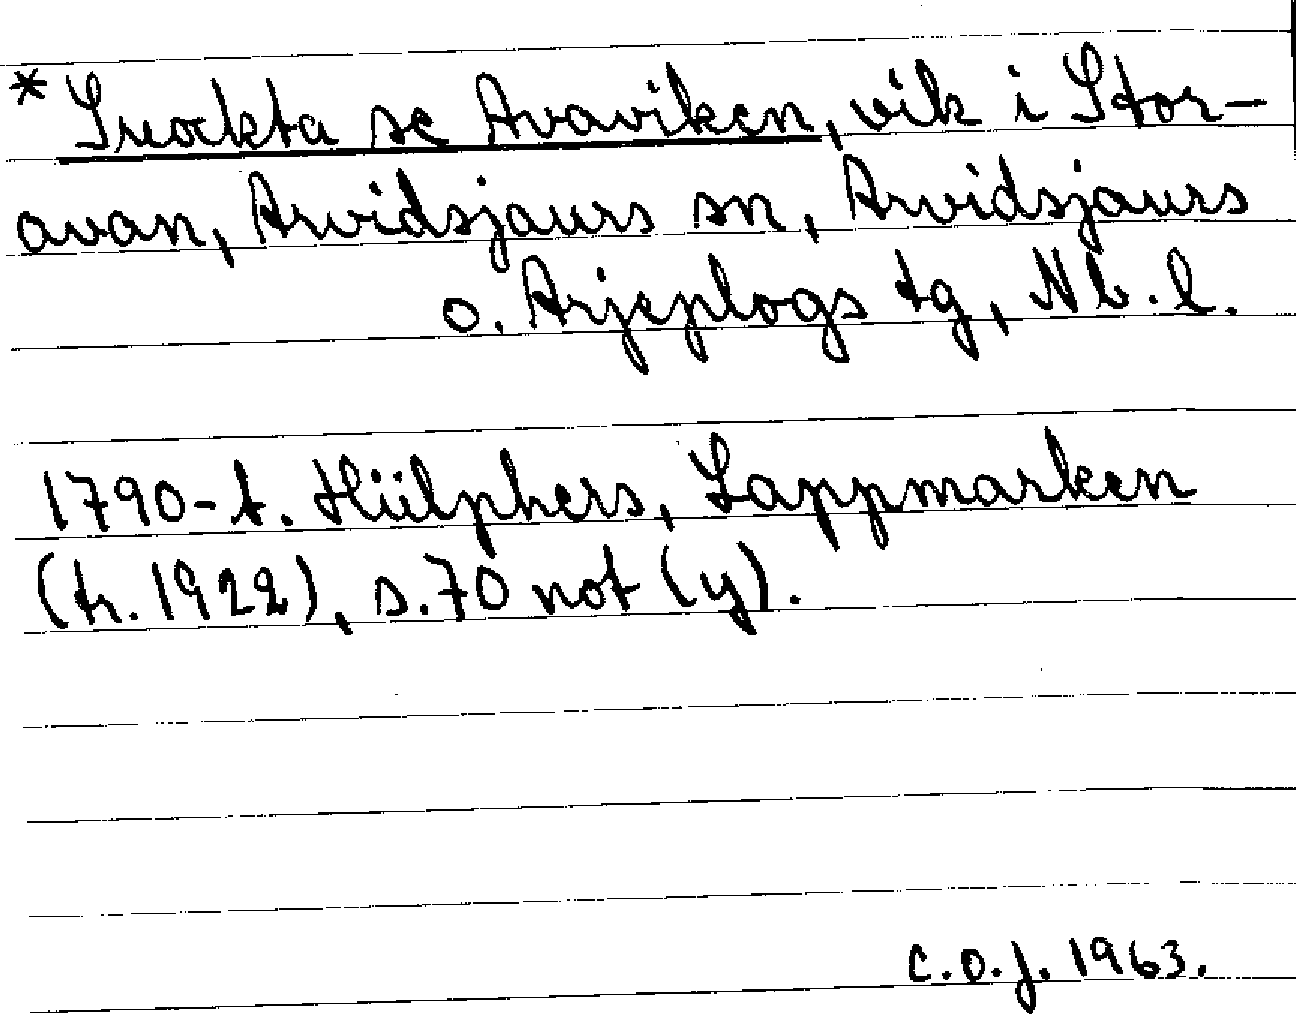 * Sneockta se Avaviken, vik i Stor-
avan, Arvidsjaurs sn, Arvidsjaurs
o. Arjeplogs tg, Nb. l.
1790-t. Hülphers, Lappmarken
(tr. 1922), s. 70 not (y).
C.O.J. 1963.